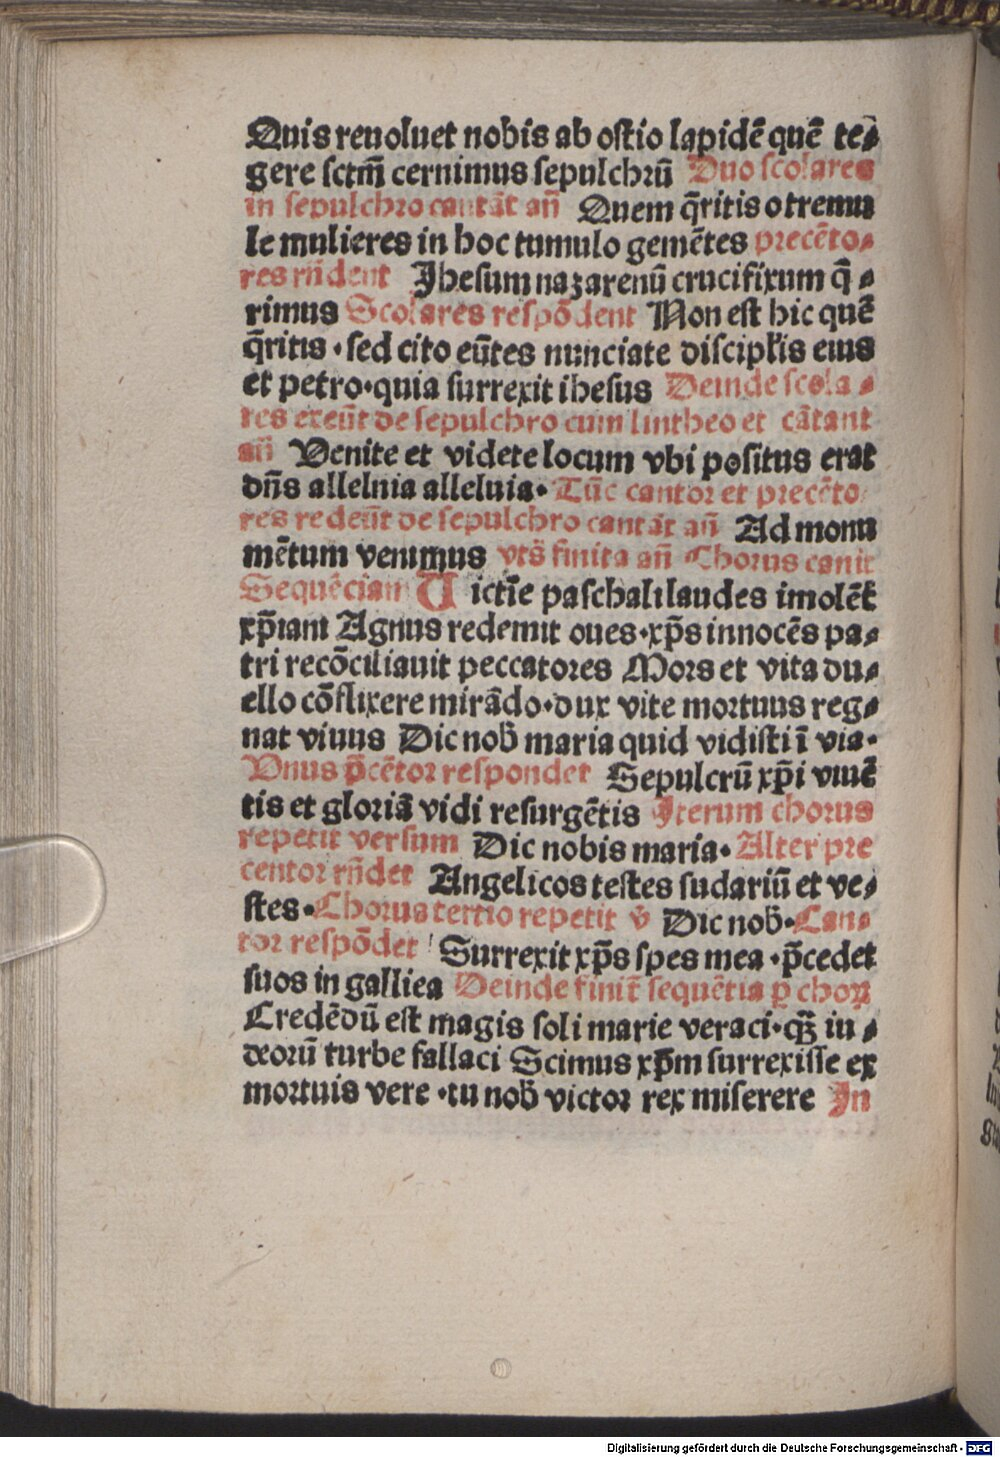 Quis reuoluet nobis ab ostio lapidē quē te⸗
gere sctm̄ cernimus sepulchrū Duo scolares
in sepulchro cantāt an̄ Quem q̄ritis o tremu
le mulieres in hoc tumulo gemētes precēto⸗
res rn̄dent Jhesum nazarenū crucifixum q̄ ⸗
rimus Scolares respōdent Non est hic quē
q̄ritis · sed cito eūtes nunciate discipl̓is eius
et petro·quia surrexit ihesus Deinde scola ⸗
res exeūt de sepulchro cum lintheo et cātant
an̄ Venite et videte locum vbi positus erat
dn̄s allelnia alleluia· Tūc cantor et precēto
res redeūt de sepulchro cantāt an̄ Ad monu
mētum venimus vts̄ finita an̄ Chorus canit
Sequēciam Victīe paschali laudes imolēt
xp̄iani Agnus redemit oues·xp̄s innocēs pa⸗
tri recōciliauit peccatores Mors et vita du⸗
ello cōflixere mirādo·dux vite mortuus reg⸗
nat viuus Dic nob̄ maria quid vidisti ī via·
Vnus p̄cētor respondet Sepulcrū xp̄i viuē
tis et gloriā vidi resurgētis Jterum chorus
repetit versum Dic nobis maria· Alter pre
centor rn̄det Angelicos testes sudariū et ve⸗
stes·Chorus tertio repetit v̄ Dic nob̄·Can⸗
tor respōdet Surrexit xp̄s spes mea ·p̄cedet
suos in galliea Deinde finit̄ sequētia ꝑ choꝝ
Credēdū est magis soli marie veraci·qꝫ̄ iu ⸗
deorū turbe fallaci Scimus xp̄m surrexisse ex
mortuis vere ·tu nob̄ victor rex miserere Jn
Digitalisierung gefördert durch die Deutsche Forschungsgemeinschaft - DFG